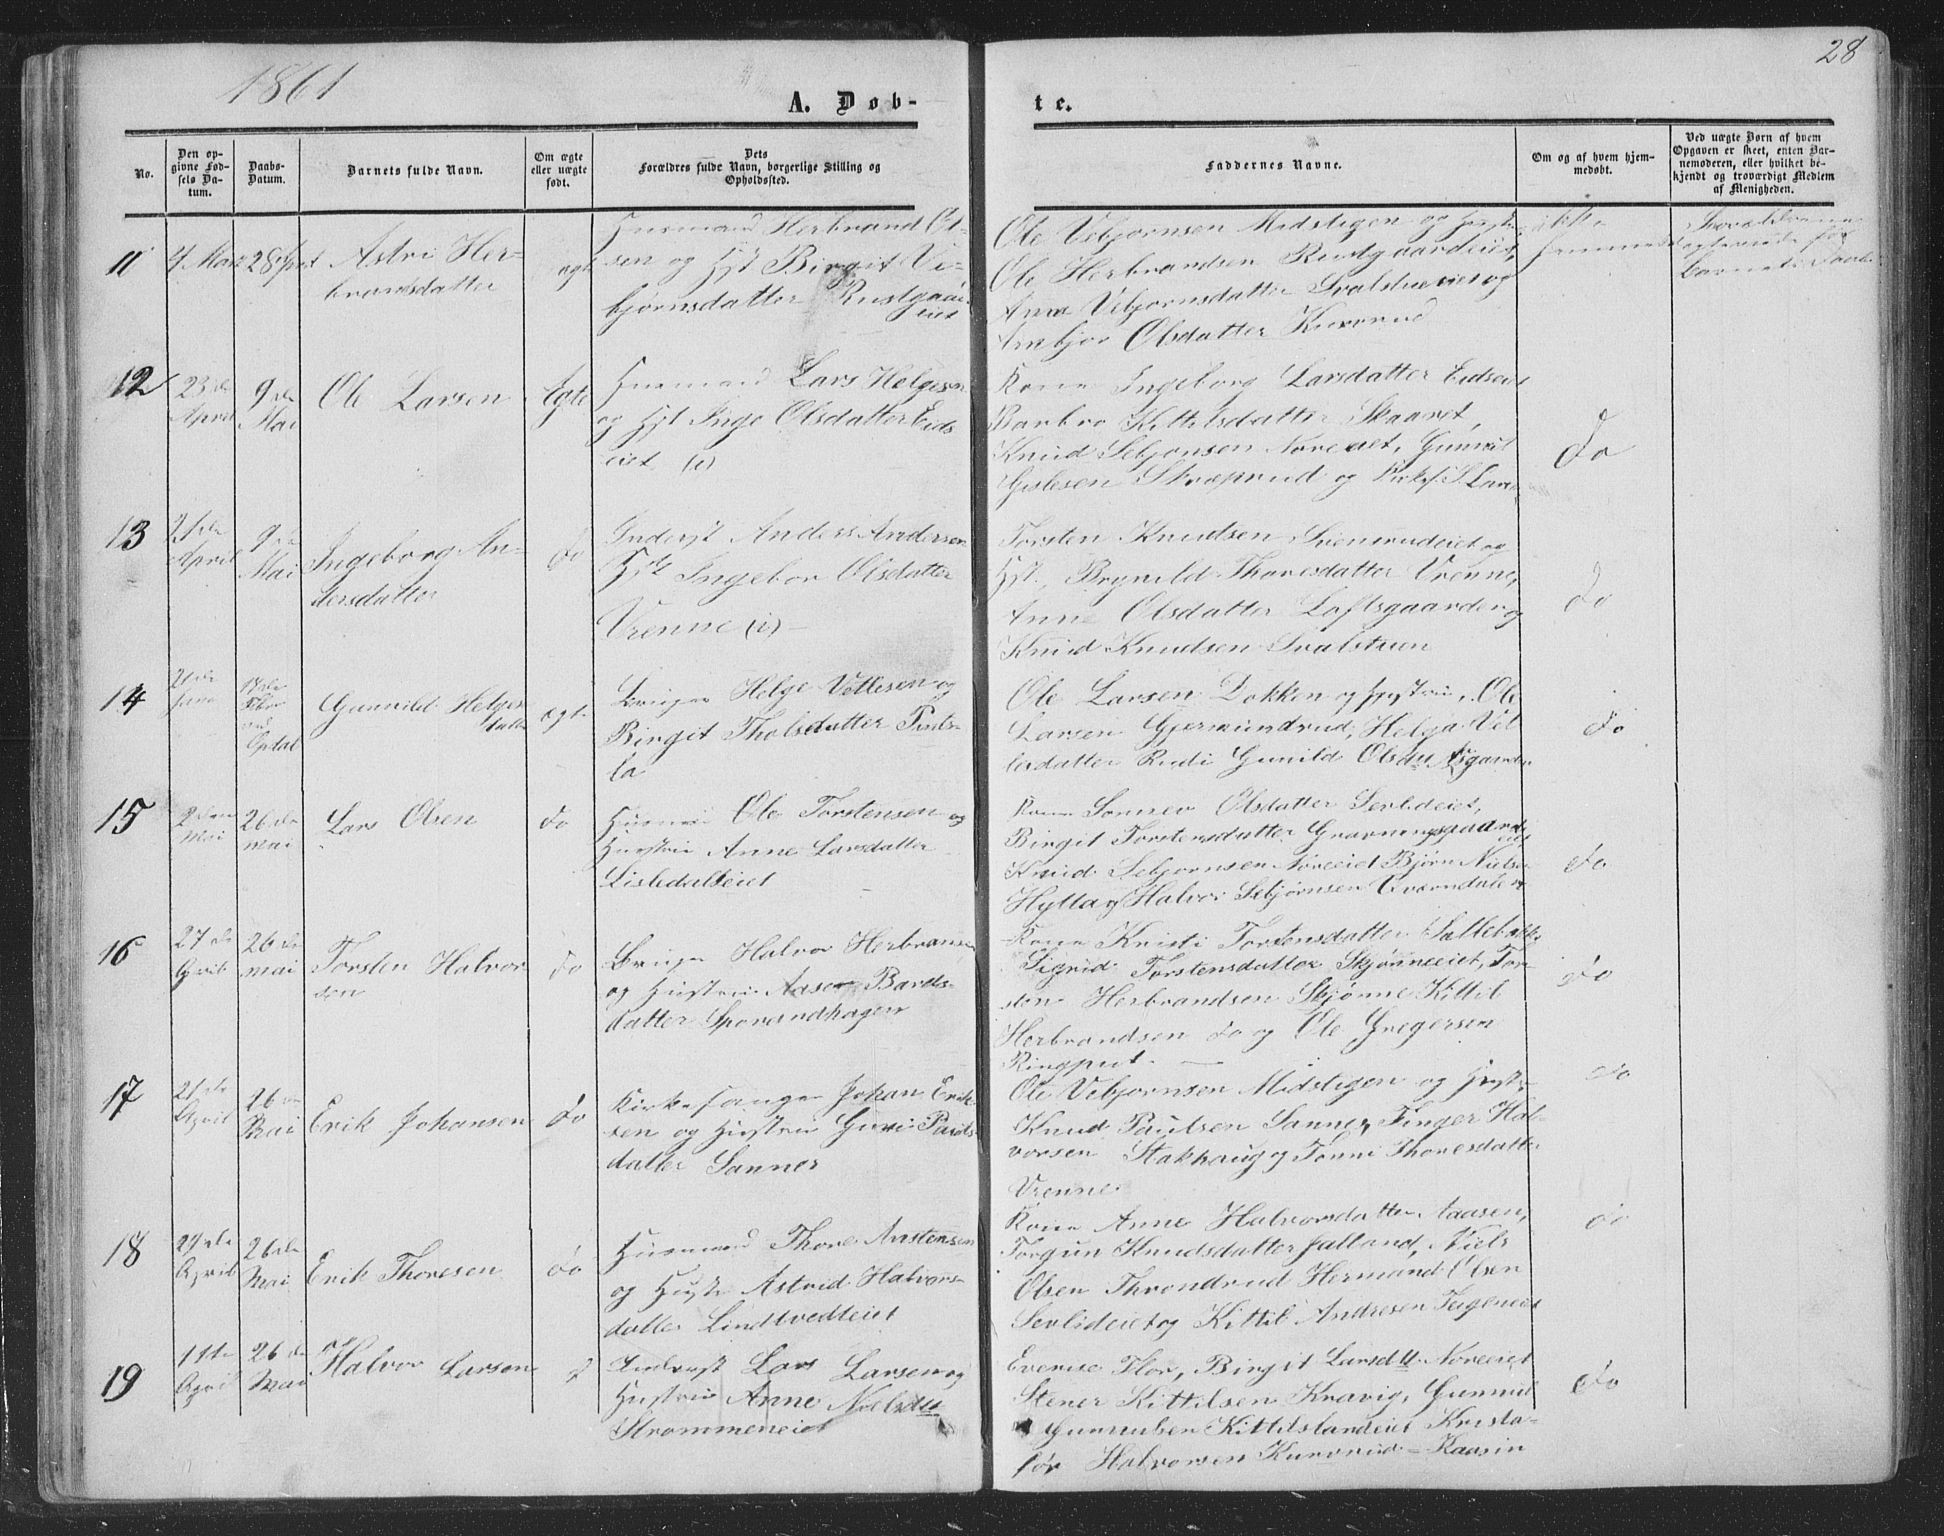 1861
28
A. Døb-
te.
No.
Den op-
givne Fød-
sels Da-
tum.
Daabs-
Datum.
Barnets fulde Navn.
Om ægte
eller uægte
født.
Dets
Forældres fulde Navn, borgerlige Stilling og
Opholdssted.
Faddernes Navne.
Om og af hvem hjem-
medøbt.
Ved uægte Børn af hvem
Opgaven er skeet, enten Bar-
nemoderen, eller hvilket be-
kjendt og troværdigt Medlem
af Menigheden.
11
Astri Her-
brandsdatter
ægte
Husmand Herbrand Ol-
sen og Hst Birgit Vi-
bjørnsdatter Rustgaar
eiet
Ole Vebjørnsen Midstigen og Hustru
Ole Herbrandsen Rustgaardeiet,
Anne Vebjørnsdatter Svalstueeiet og
Anbjør Olsdatter Kuvorud
ikke
hjemmedøbt
Forældrene
Barnets
12
23 de
April
9 de
Mai
Ole Larsen
Ægte
Husmand Lars Helgesen
og Hst Inge Olsdatter Eids
eiet (i)
Kone Ingeborg Larsdatter Eidseiet
Barbro Kittilsdatter Skaaret,
Knud Sebjønsen Noreeiet, Gunnul
Gislesen Skraprud og Kirkes. S. Larsen
Do
13
21 de
April
9 de
Mai
Ingeborg An-
dersdatter
do
Inderst Anders Andersen
Hst Ingebor Olsdatter
Vrenne (i)
Torsten Knudsen Svenerudeiet og
Hst. Brynild Thoresdatter Vrenne,
Anne Olsdatter Loftsgaarden og
Knud Knudsen Svalstuen
do
14
Gunnild Helges
datter
ægte
Bruger Helge Vetlesen og
Birgit Tholsdatter Puls-
la
Ole Larsen Dokken og Hustru, Ole
Larsen Gjermundrud, Helga Vet
lesdatter Rudi Gunild Olsdtt
do
15
2 den
Mai
26 de
mai
Lars Olsen
do
Husmand Ole Torstensen og
Hustru Anne Larsdatter
Lisledalseiet
Kone Sønnev Olsdatter Sevlideiet,
Birgit Torstensdatter Gravningsgaard
eiet
Knud Sebjørnsen Nøreeiet Bjørn Nielsen
Hytta og Halvor Sebjørnsen Qværndalen
do
16
27 de
April
26 de
mai
Torsten Halvor
sen
do
Bruger Halvor Herbransen
og Hustru Aaser Bards-
datter Sporandhagen
Kone Kristi Torstensdatter Sattebakke
Sigrid Torstensdatter Skjønneeiet, Tor-
sten Herbrandsen Skjønne Kittil
Herbrandsen do og Ole Gregersen
Ringput
do
17
21 de
April
26 de
Mai
Erik Johansen
do
Kirkesanger Johan Erik-
sen og Hustru Guri Pauls-
datter Sanner
Ole Vebjørnsen Midstigen og Hust-
Knud Paulsen Sanner, Finger Hal-
vorsen Stakhaug og Tonni Thoresdatter
Vrenne
do
18
27 de
April
26 de
Mai
Erik Thoresen
do
Husmand Thore Anstensen
og Hust Astrid Halvors-
datter Lindtvedteiet
Kone Anne Halvorsdatter Aaasen,
Torgun Knudsdatter Jalland, Niels
Olsen Throndrud Hermand Olsen
Sevlideiet og Kittil Andresen Teigeneiet
do
19
11te
April
26 de
Mai
Halvor Larsen
d
Inderst Lars Larsen og
Hustru Anne Nielsdtt
Strommeneiet
Everise Flor, Birgit Larsdtt Noreeiet
Stener Kittilsen Kravig, Gunnul
Gunnulsen Kittilslandeiet Kristo-
før Halvorsen Kuvorud = Kaasin
Do